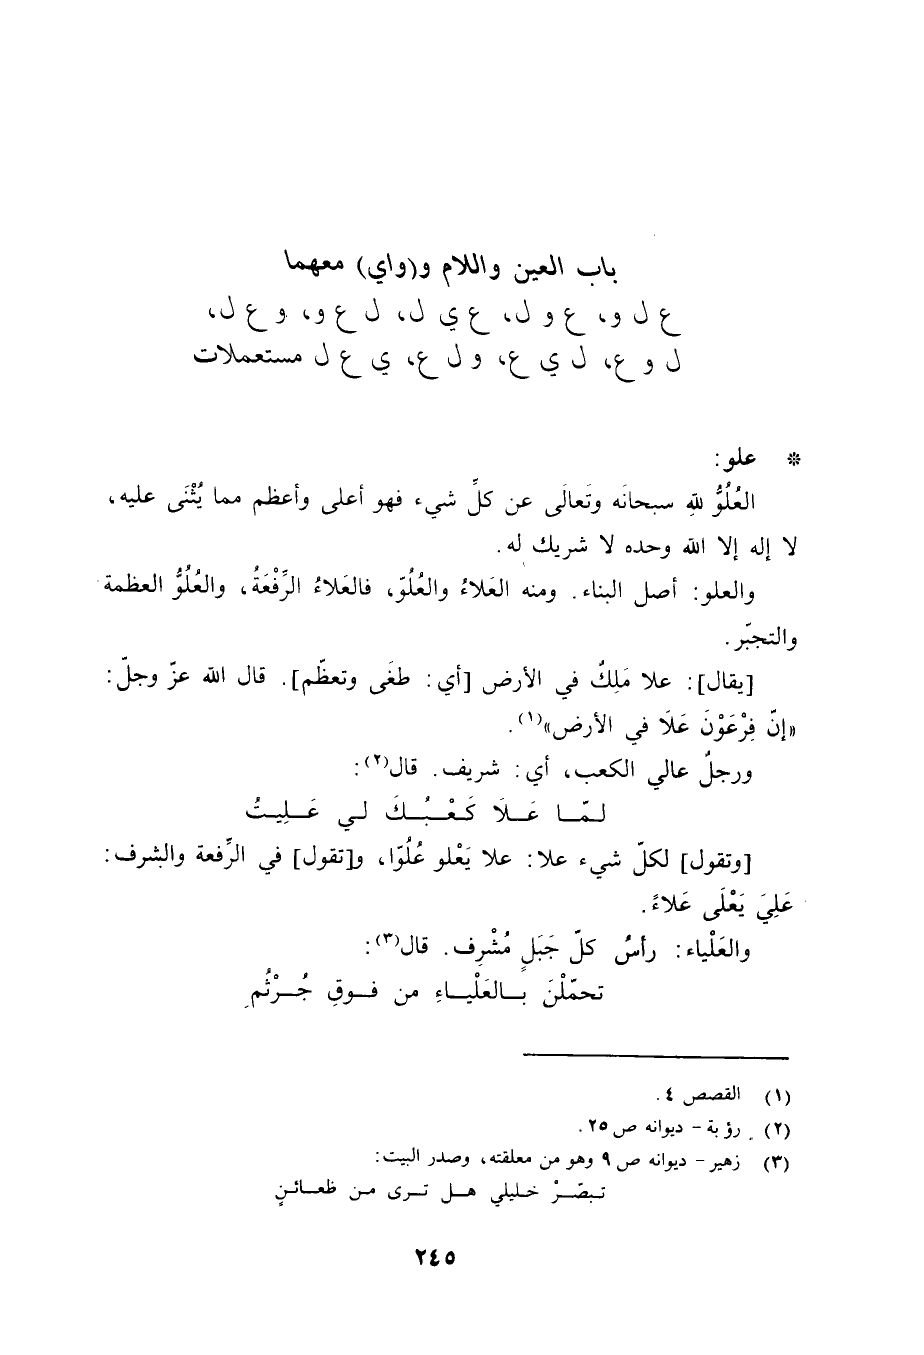 باب العين واللام و(واي) معهما
ع ل و، ع و ل، ع ي ل، ل ع و، و ع ل،
ل و ع، ل ي ع، و ل ع، ي ع ل مستعملات
* علو:
العُلُوُّ للهِ سبحانَه وتَعالَى عن كلِّ شيء فهو أعلى وأعظم مما يُثْنَى عليه،
لا إله إلا الله وحده لا شريك له.
والعلو: أصل البناء. ومنه العَلاءُ والعُلُوّ، فالعَلاءُ الرِّفْعَةُ، والعُلُوُّ العظمة
والتجبّر.
[يقال]: علا مَلِكٌ في الأرض [أي: طغَى وتعظّم]. قال الله عزّ وجلّ:
«إنّ فِرْعَوْنَ عَلَا في الأرض»(١).
ورجلٌ عالي الكعب، أي: شريف. قال(٢):
لـمّـا عَـلاَ كَـعْـبُـكَ لي عَـلِيـتُ
[وتقول] لكلّ شيء علا: علا يَعْلو عُلُوّا، و[تقول] في الرِّفعة والشرف:
عَلِيَ يَعْلَى عَلاءً.
والعَلْياء: رأسُ كلّ جَبَلٍ مُشْرِف. قال(٣):
تحمّلْنَ بـالعَلْيـاءِ من فـوقِ جُـرْثُمِ
(١) القصص ٤.
(٢) رؤبة - ديوانه ص ٢٥.
(٣) زهير - ديوانه ص ٩ وهو من معلقته، وصدر البيت:
تـبصّـرْ خليلي هـل تـرى مـن ظعـائـنٍ
٢٤٥